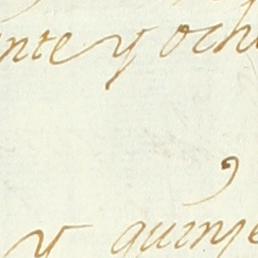 nte y och
y quinse